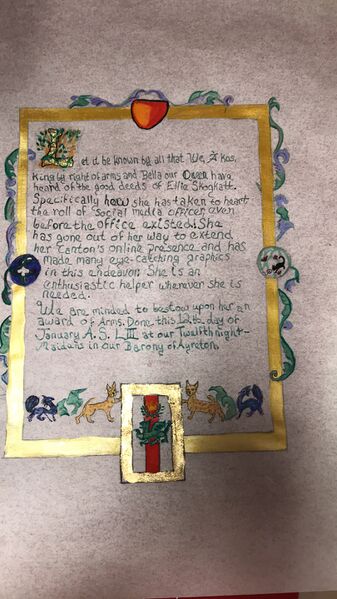 Let it be known by all that We, Akos,
King by right of arms and Bella our Queen have
heard of the good deeds of Ellie Skogkatt.
Specifically how she has taken to heart
the roll of Social media officer even
before the office existed. She
has gone out of her way to extend
her Canton's online presence and has
made many eye-catching graphics
in this endeavor. She is an
enthusiastic helper wherever she is
needed.
We are minded to bestow upon her an
award of Arms. Done this 12th day of
January A.S. LIII at our Twelfth night-
Maidans in our Barony of Ayreton.